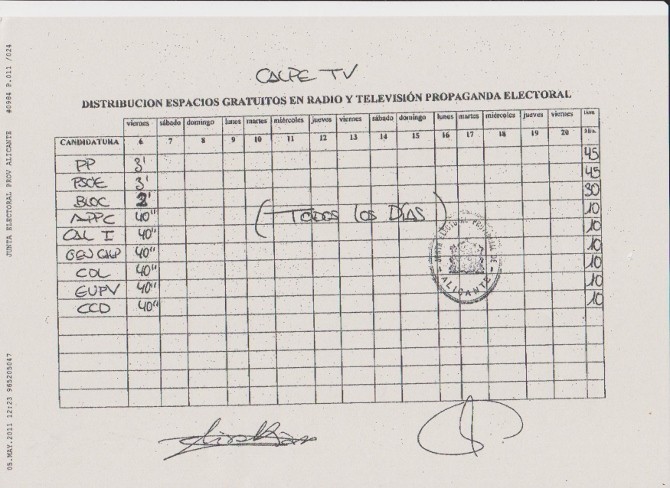 CALPE TV
DISTRIBUCION ESPACIOS GRATUITOS EN RADIO Y TELEVISIÓN PROPAGANDA ELECTORAL
viernes sábado domingo lunes martes miércoles jueves viernes sábado domingo lunes martes miércoles jueves viernes
CANDIDATURA 6 7 8 9 10 11 12 13 14 15 16 17 18 19 20
PP 3' 45
PSOE 3' 45
BLOC 2' 30
APPC 40" 10
(TODOS LOS DÍAS)
CAL I 40" 10
GEN CALP 40" 10
CDL 40" 10
EUPV 40" 10
CCD 40" 10
JUNTA ELECTORAL PROVINCIAL DE
ALICANTE
05.MAY.2011 12:23 965205047
JUNTA ELECTORAL PROV ALICANTE
#0994 P.011 /024